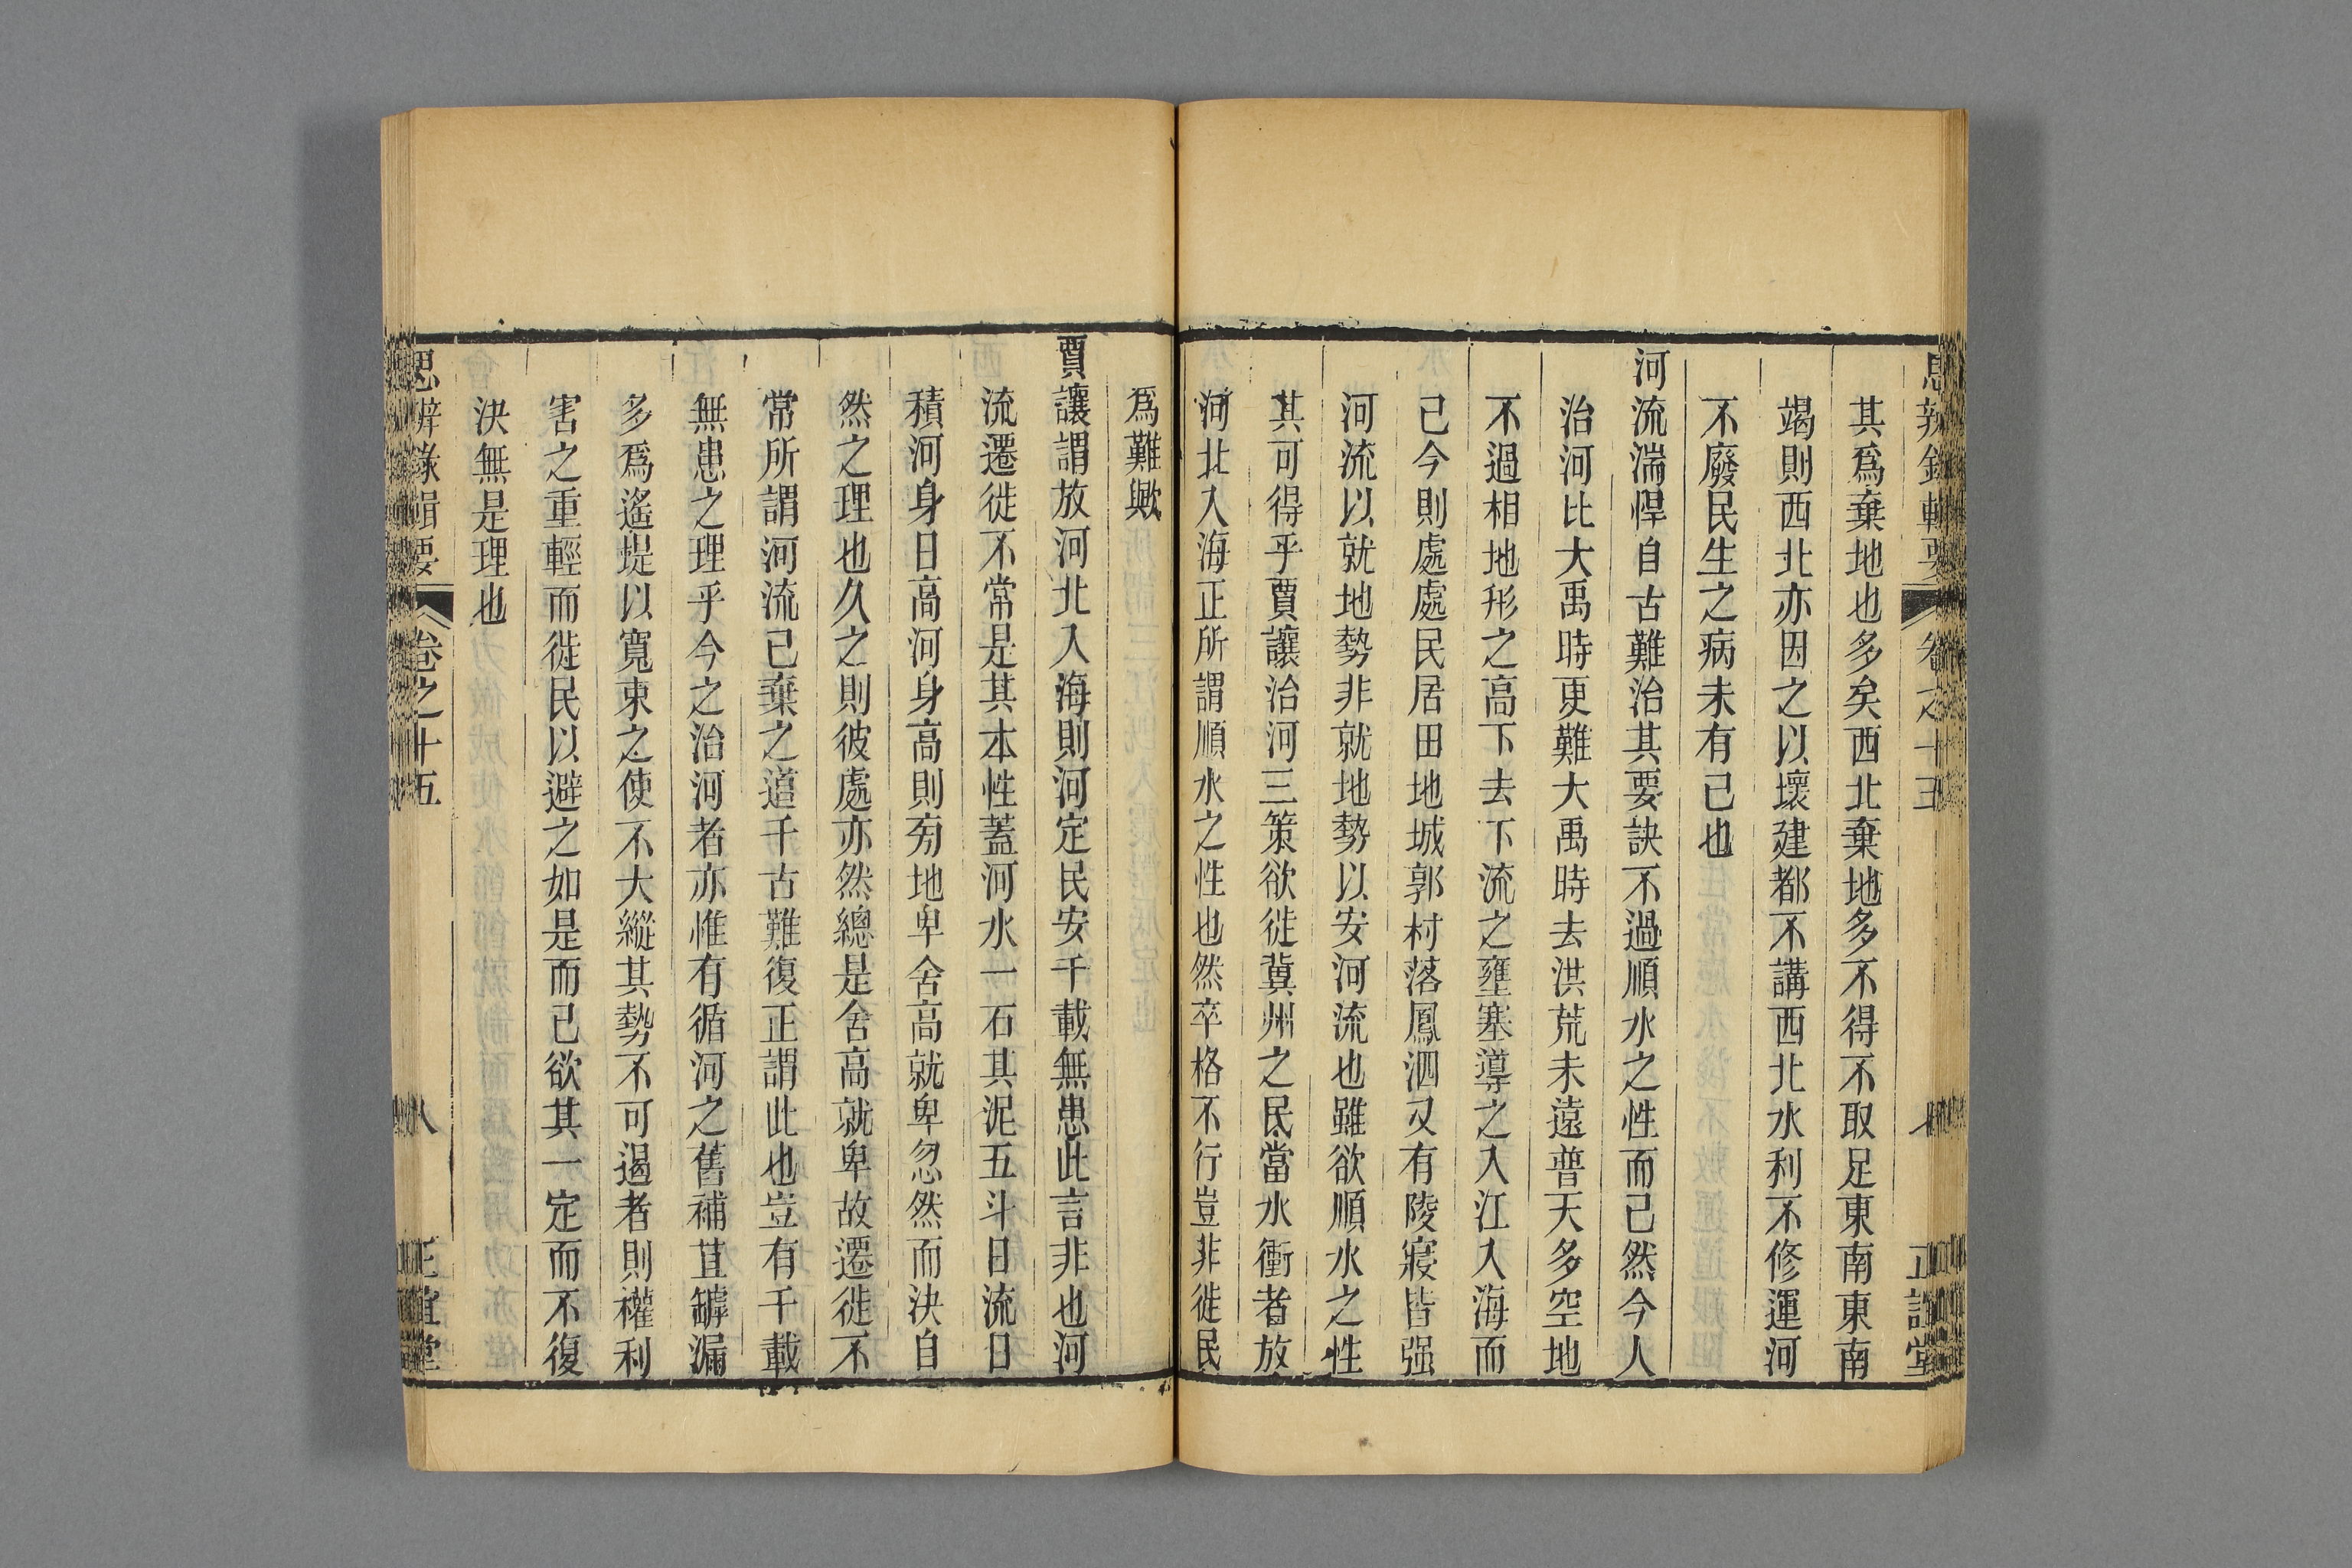 其爲棄地也多矣西北棄地多不得不取足東南東南
竭則西北亦因之以壞建都不講西北水利不修運河
不廢民生之病未有已也
河流湍悍自古難治其要訣不過順水之性而已然今人
治河比大禹時更難大禹時去洪荒未遠普天多空地
不過相地形之高下去下流之壅塞導之入江入海而
已今則處處民居田地城郭村落鳳泗又有陵寢皆强
河流以就地勢非就地勢以安河流也雖欲順水之性
其可得乎賈讓治河三策欲徙冀州之民當水衝者放
河北入海正所謂順水之性也然卒格不行豈非徙民
爲難歟
賈讓謂放河北入海則河定民安千載無患此言非也河
流遷徙不常是其本性蓋河水一石其泥五斗日流日
積河身日高河身高則旁地卑舍高就卑忽然而決自
然之理也久之則彼處亦然總是舍高就卑故遷徙不
常所謂河流已棄之道千古難復正謂此也豈有千載
無患之理乎今之治河者亦惟有循河之舊補苴罅漏
多爲遙堤以寬束之使不大縱其勢不可遏者則權利
害之重輕而徙民以避之如是而已欲其一定而不復
決無是理也
思辨錄輯要 卷之十五 八 正誼堂